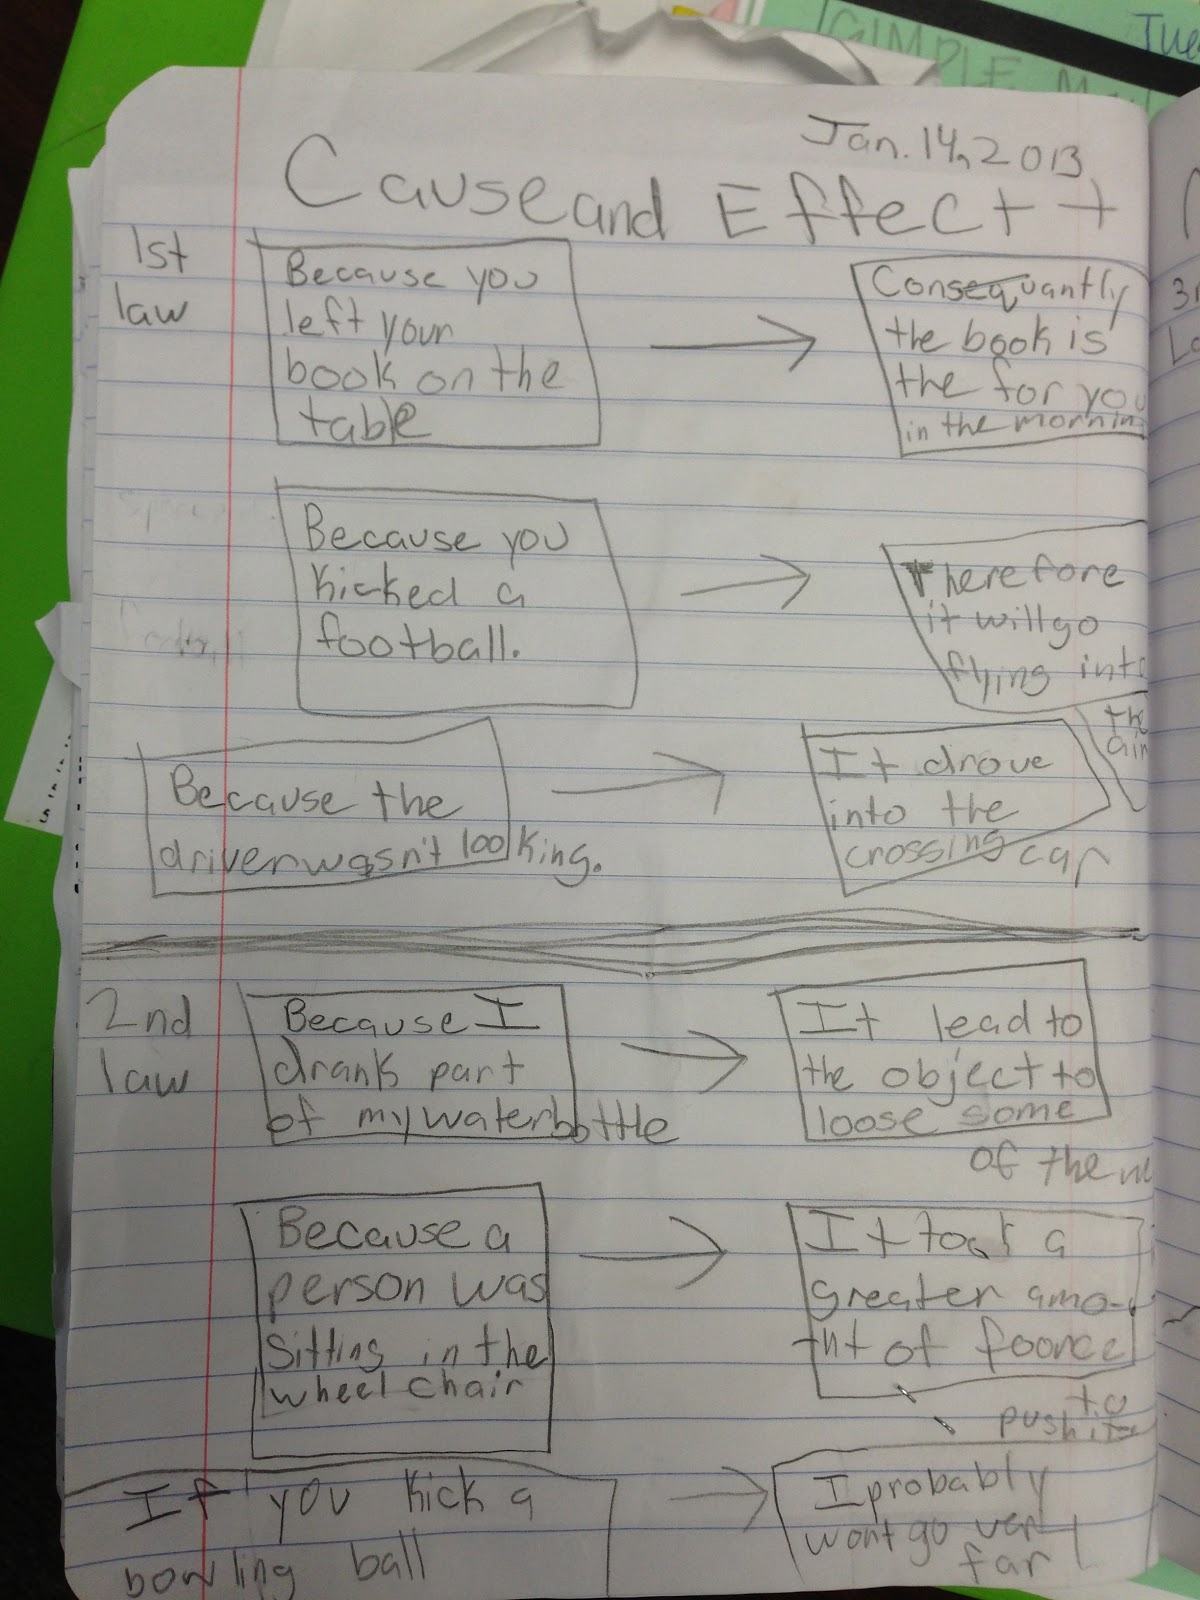 GIMPLE
Tue
Jan. 14, 2013
Cause and Effect
1st
law
Because you
left your
book on the
table
Consequantly
the book is
the for you
in the mornin
Because you
kicked a
football.
Therefore
it will go
flying into
the
air
Because the
driver wasn't looking.
It drove
into the
crossing car
2nd
law
Because I
drank part
of my waterbottle
It lead to
the object to
loose some
of the
Because a
person was
sitting in the
wheel chair
It took a
greater amo
nt of foorce
to
push it
If you kick a
bowling ball
I probably
wont go very
far